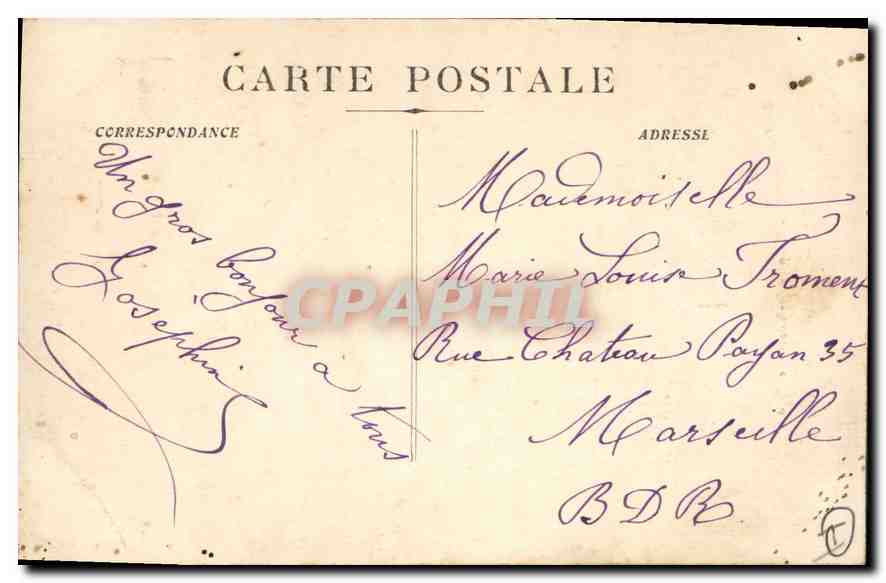 CARTE POSTALE
CORRESPONDANCE
ADRESSE
Un gros bonjour à tous
Joséphine
Mademoiselle
Marie Louise Froment
Rue Chateau Payan 35
Marseille
BDR
CPAPHIL